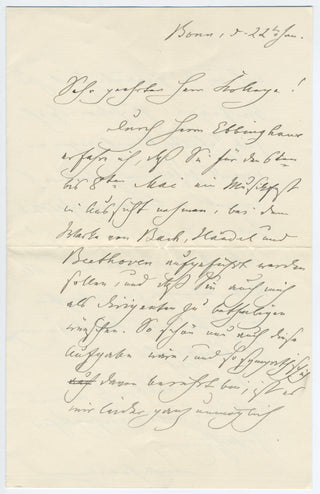 Bonn, d. 22ten Jan.
Sehr geehrter Herr Kollege!
Durch Herrn Ebbinghaus
erfahre ich, daß Sie für den 6ten
bis 8ten Mai ein Musikfest
in Aussicht nehmen, bei dem
Werke von Bach, Händel und
Beethoven aufgeführt werden
sollen, und daß Sie auch mich
als Dirigenten zu betheiligen
wünschen. So schön nun auch diese
Aufgabe wäre, und so sympathisch ich
davon berührt bin, ist es
mir leider ganz unmöglich